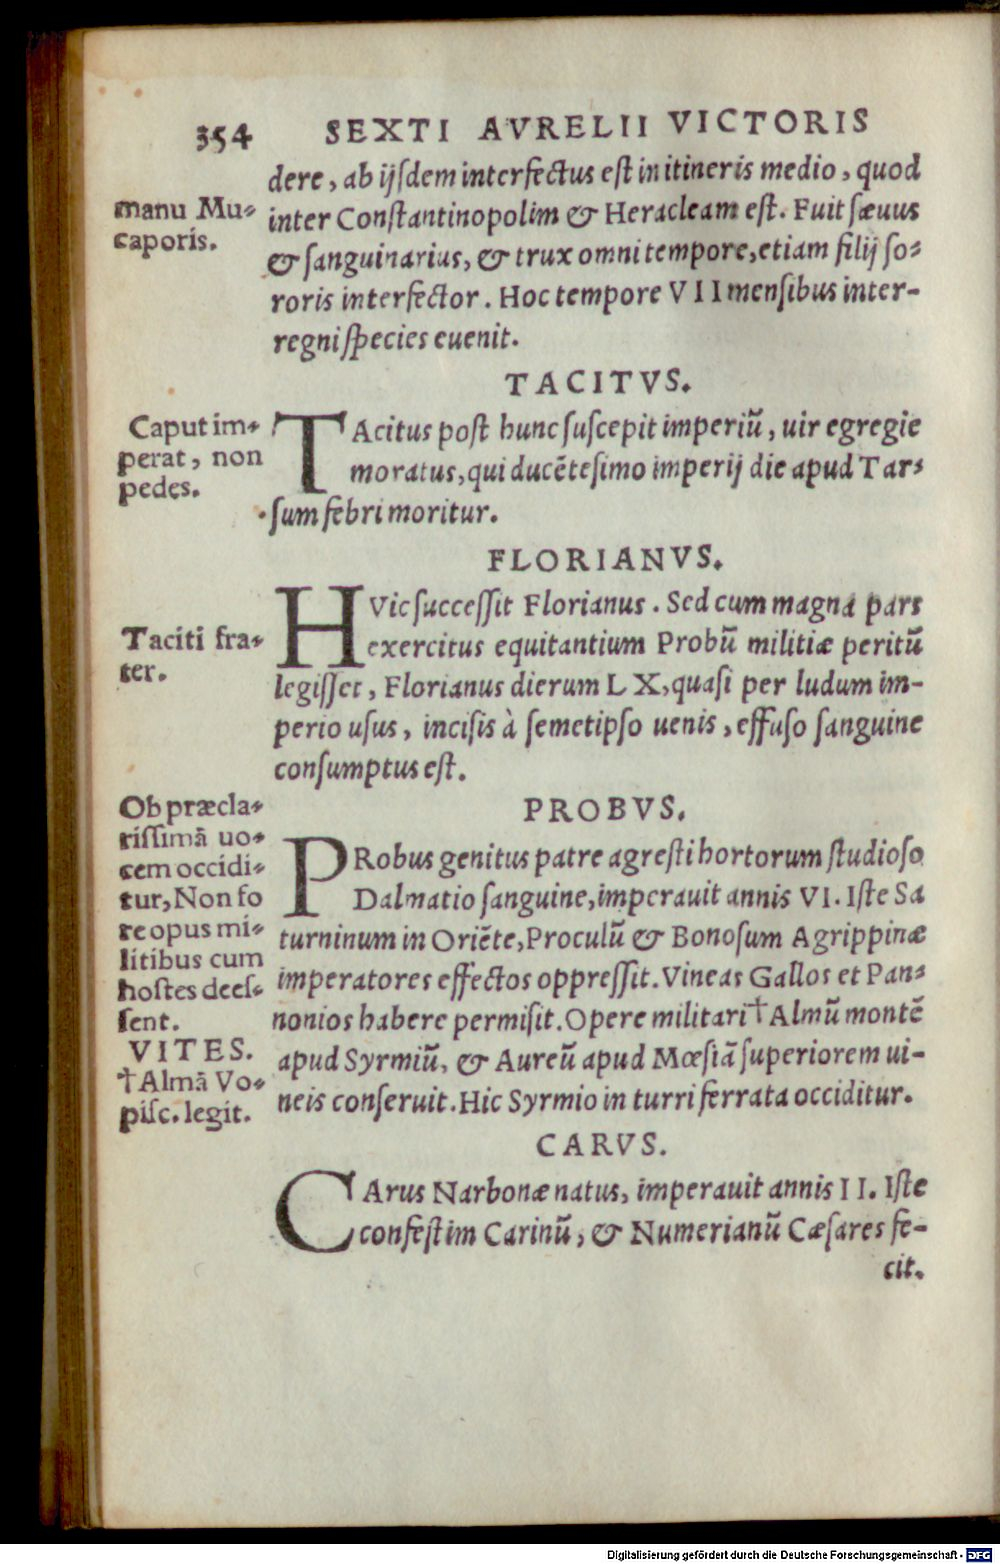 354 SEXTI AVRELII VICTORIS
dere, ab ijsdem interfectus est in itineris medio, quod
inter Constantinopolim & Heracleam est. Fuit sæuus
& sanguinarius, & trux omni tempore, etiam filij so-
roris interfector. Hoc tempore VII mensibus inter-
regni species euenit.
manu Mu-
caporis.
TACITVS.
TAcitus post hunc suscepit imperiū, uir egregie
moratus, qui ducētesimo imperij die apud Tar-
sum febri moritur.
Caput im-
perat, non
pedes.
FLORIANVS.
HVic successit Florianus. Sed cum magna pars
exercitus equitantium Probū militiæ peritū
legisset, Florianus dierum LX, quasi per ludum im-
perio usus, incisis à semetipso uenis, effuso sanguine
consumptus est.
Taciti fra-
ter.
PROBVS.
PRobus genitus patre agresti hortorum studioso
Dalmatio sanguine, imperauit annis VI. Iste Sa
turninum in Oriēte, Proculū & Bonosum Agrippinæ
imperatores effectos oppressit. Vineas Gallos et Pan-
nonios habere permisit. Opere militari † Almū montē
apud Syrmiū, & Aureū apud Mœsiā superiorem ui-
neis conseruit. Hic Syrmio in turri ferrata occiditur.
Ob præcla-
rissimā uo-
cem occidi-
tur, Non fo
re opus mi-
litibus cum
hostes dees-
sent.
VITES.
† Almā Vo-
pisc. legit.
CARVS.
CArus Narbonæ natus, imperauit annis II. Iste
confestim Carinū, & Numerianū Cæsares fe-
cit.
Digitalisierung gefördert durch die Deutsche Forschungsgemeinschaft - DFG